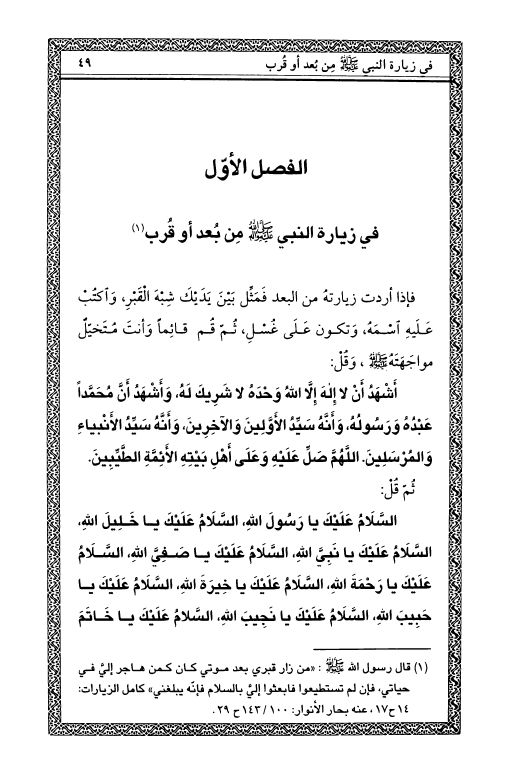 في زيارة النبي ﷺ مِن بُعد أو قُرب ٤٩
الفصل الأوّل
في زيارة النبي ﷺ مِن بُعد أو قُرب(١)
فإذا أردت زيارتهُ من البعد فَمَثِّل بَيْنَ يَدَيْكَ شِبْهَ الْقَبْرِ، وَاكتُبْ
عَلَيهِ اسْمَهُ، وَتكون عَلَى غُسْلٍ، ثُمّ قُم قائِماً وَأنتَ مُتَخيّلٌ
مواجَهَتَهُ ﷺ ، وَقُلْ:
أَشْهَدُ أَنْ لا إلهَ إلَّا اللهُ وَحْدَهُ لا شَرِيكَ لَهُ، وَأَشْهَدُ أَنَّ مُحَمَّداً
عَبْدُهُ وَرَسُولُهُ، وَأَنَّهُ سَيِّدُ الأَوَّلِينَ وَالآخِرِينَ، وَأَنَّهُ سَيِّدُ الأَنْبِياءِ
وَالمُرْسَلِينَ. اللَّهُمَّ صَلِّ عَلَيْهِ وَعَلَى أَهْلِ بَيْتِهِ الأَئِمَّةِ الطَّيِّبِينَ.
ثُمّ قُلْ:
السَّلَامُ عَلَيْكَ يا رَسُولَ اللهِ، السَّلَامُ عَلَيْكَ يـا خَلِيلَ اللهِ،
السَّلَامُ عَلَيْكَ يا نَبِيَّ اللهِ، السَّلَامُ عَلَيْكَ يـا صَـفِيَّ اللهِ، السَّـلَامُ
عَلَيْكَ يا رَحْمَةَ اللهِ، السَّلَامُ عَلَيْكَ يا خِيرَةَ اللهِ، السَّلَامُ عَلَيْكَ يـا
حَبِيبَ اللهِ، السَّلَامُ عَلَيْكَ يا نَجِيبَ اللهِ، السَّلَامُ عَلَيْكَ يـا خَاتَمَ
(١) قال رسول الله ﷺ : «من زار قبري بعد موتي كان كمن هاجر إليَّ في
حياتي، فإن لم تستطيعوا فابعثوا إليَّ بالسلام فإنّه يبلغني» كامل الزيارات:
١٤ ح١٧، عنه بحار الأنوار: ١٠٠ /١٤٣ ح ٢٩.